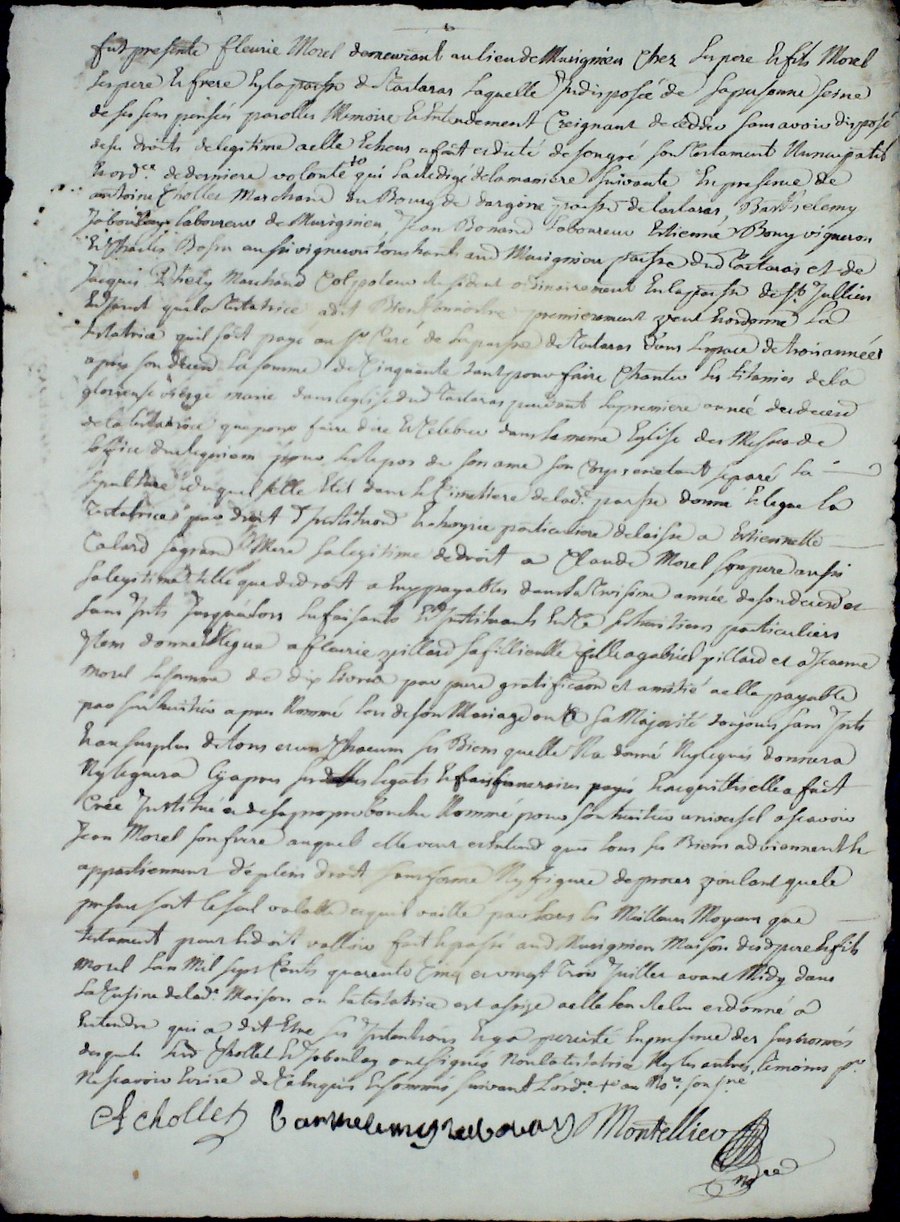 fut presente fleurie Morel demeurant au lieu de Murignieu Chez Ses pere & fils Morel
Ses pere & frere En la parsse de Tartaras Laquelle Indisposée de Sa personne Seine
de Ses sens pensées parolles Memoire & Entendement Creignant de ceddée Sans avoir disposé
de ses droits de legitime a elle Echeus a fait et dicté de son gré son Testament Nuncupatif
& ordce de derniere volonté qui Sa Redige de la maniere Suivante En presence de
antoine Chollet Marchand du Bourg de dargoire parsse de tartaras, Barthelemy
Jaboulay laboureur de Murignieu, Jean Bonnand Laboureur Estienne Bony vigneron
& Charles Bosin aussi vigneron touchant aud Murignieu parsse dud Tartaras et de
Jacques Marchand Colpoteur Resident ordinairement En la parsse de St Jullien
la Testatrice a dit Bien Connoitre premierement veut & ordonne La
testatrice quil soit paye au Sr Curé de La parsse de Tartaras dans Lespace de trois années
apres son deces La somme de Cinquante tant pour faire Chanter Les Litanies de la
glorieuse vierge marie dans leglise dud Tartaras pendant La premiere année du deces
de la testatrice que pour faire dire & Celebrer dans La meme Eglise des Messes de
de Requiem pour le Repos de son ame son Corps etant separé La
sepulture duquel elle Elit dans le Cimetiere de lad. parsse donne & legue la
Testatrice par droit d'Institution & hoyrie particuliere delaisse a Estiennette
Calard sa mere sa legitime de droit a Claude Morel son pere aussi
sa legitime telle que de droit a Eux payables dans la troisieme année de son deces et
sans Ints Jusqu'alors Les faisants & Instituants heritiers particuliers
Item donne & legue a fleurie pillard sa fillieulle fille a gabriel pillard et a Jeanne
morel La somme de dix Livres par pure gratification et amitié a elle payable
par son heritier apres Nommé lors de son Mariage ou Sa Majorité toujours sans Ints
& au surplus de tous et un Chacuns ses Biens quelle N'a donné Ny legués donnera
Ny leguera Cy apres ses legats & frais funeraires payés & acquittés elle a fait
Créé Institué & de sa propre bouche Nommé pour son heritier universel a scavoir
Jean Morel son frere auquel elle veut & entend que tous ses Biens adviennent &
appartiennent de plein droit sans forme Ny figure de proces voulant que le
present soit le seul valable & quil vaille par tous les Meilleurs Moyens que
testament peut & doit valloir fait & passé aud Murignieu Maison desd pere & fils
morel Lan Mil Sept Cents quarente Cinq et vingt trois Juillet avant Midy dans
La Cuisine de lad. Maison ou la testatrice est assise a elle Leu Releu et donné a
Entendre qui a dit Etre Ses Intentions & y a persisté En presence des susnommés
desquels led Chollet & Jaboulay ont signés Non la testatrice Ny les autres temoins pr
Ne scavoir Ecrire de Ce Enquis & sommés suivant Lordce
A chollet barthelemy Jaboulay Montellier
nore